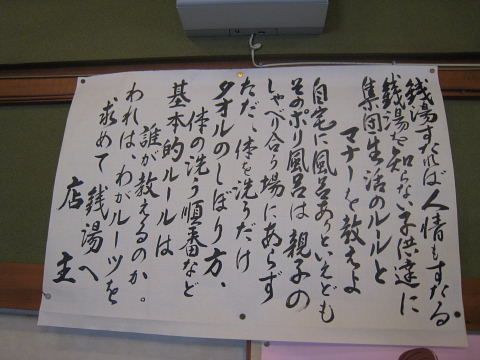 銭湯すたれば人情もすたる
銭湯を知らない子供達に
集団生活のルールと
マナーを教えよ
自宅に風呂ありといえども
そのポリ風呂は親子の
しゃべり合う場にあらず
ただ、体を洗うだけ
タオルのしぼり方、
体の洗う順番など
基本的ルールは
誰が教えるのか。
われは、わがルーツを
求めて銭湯へ
店主